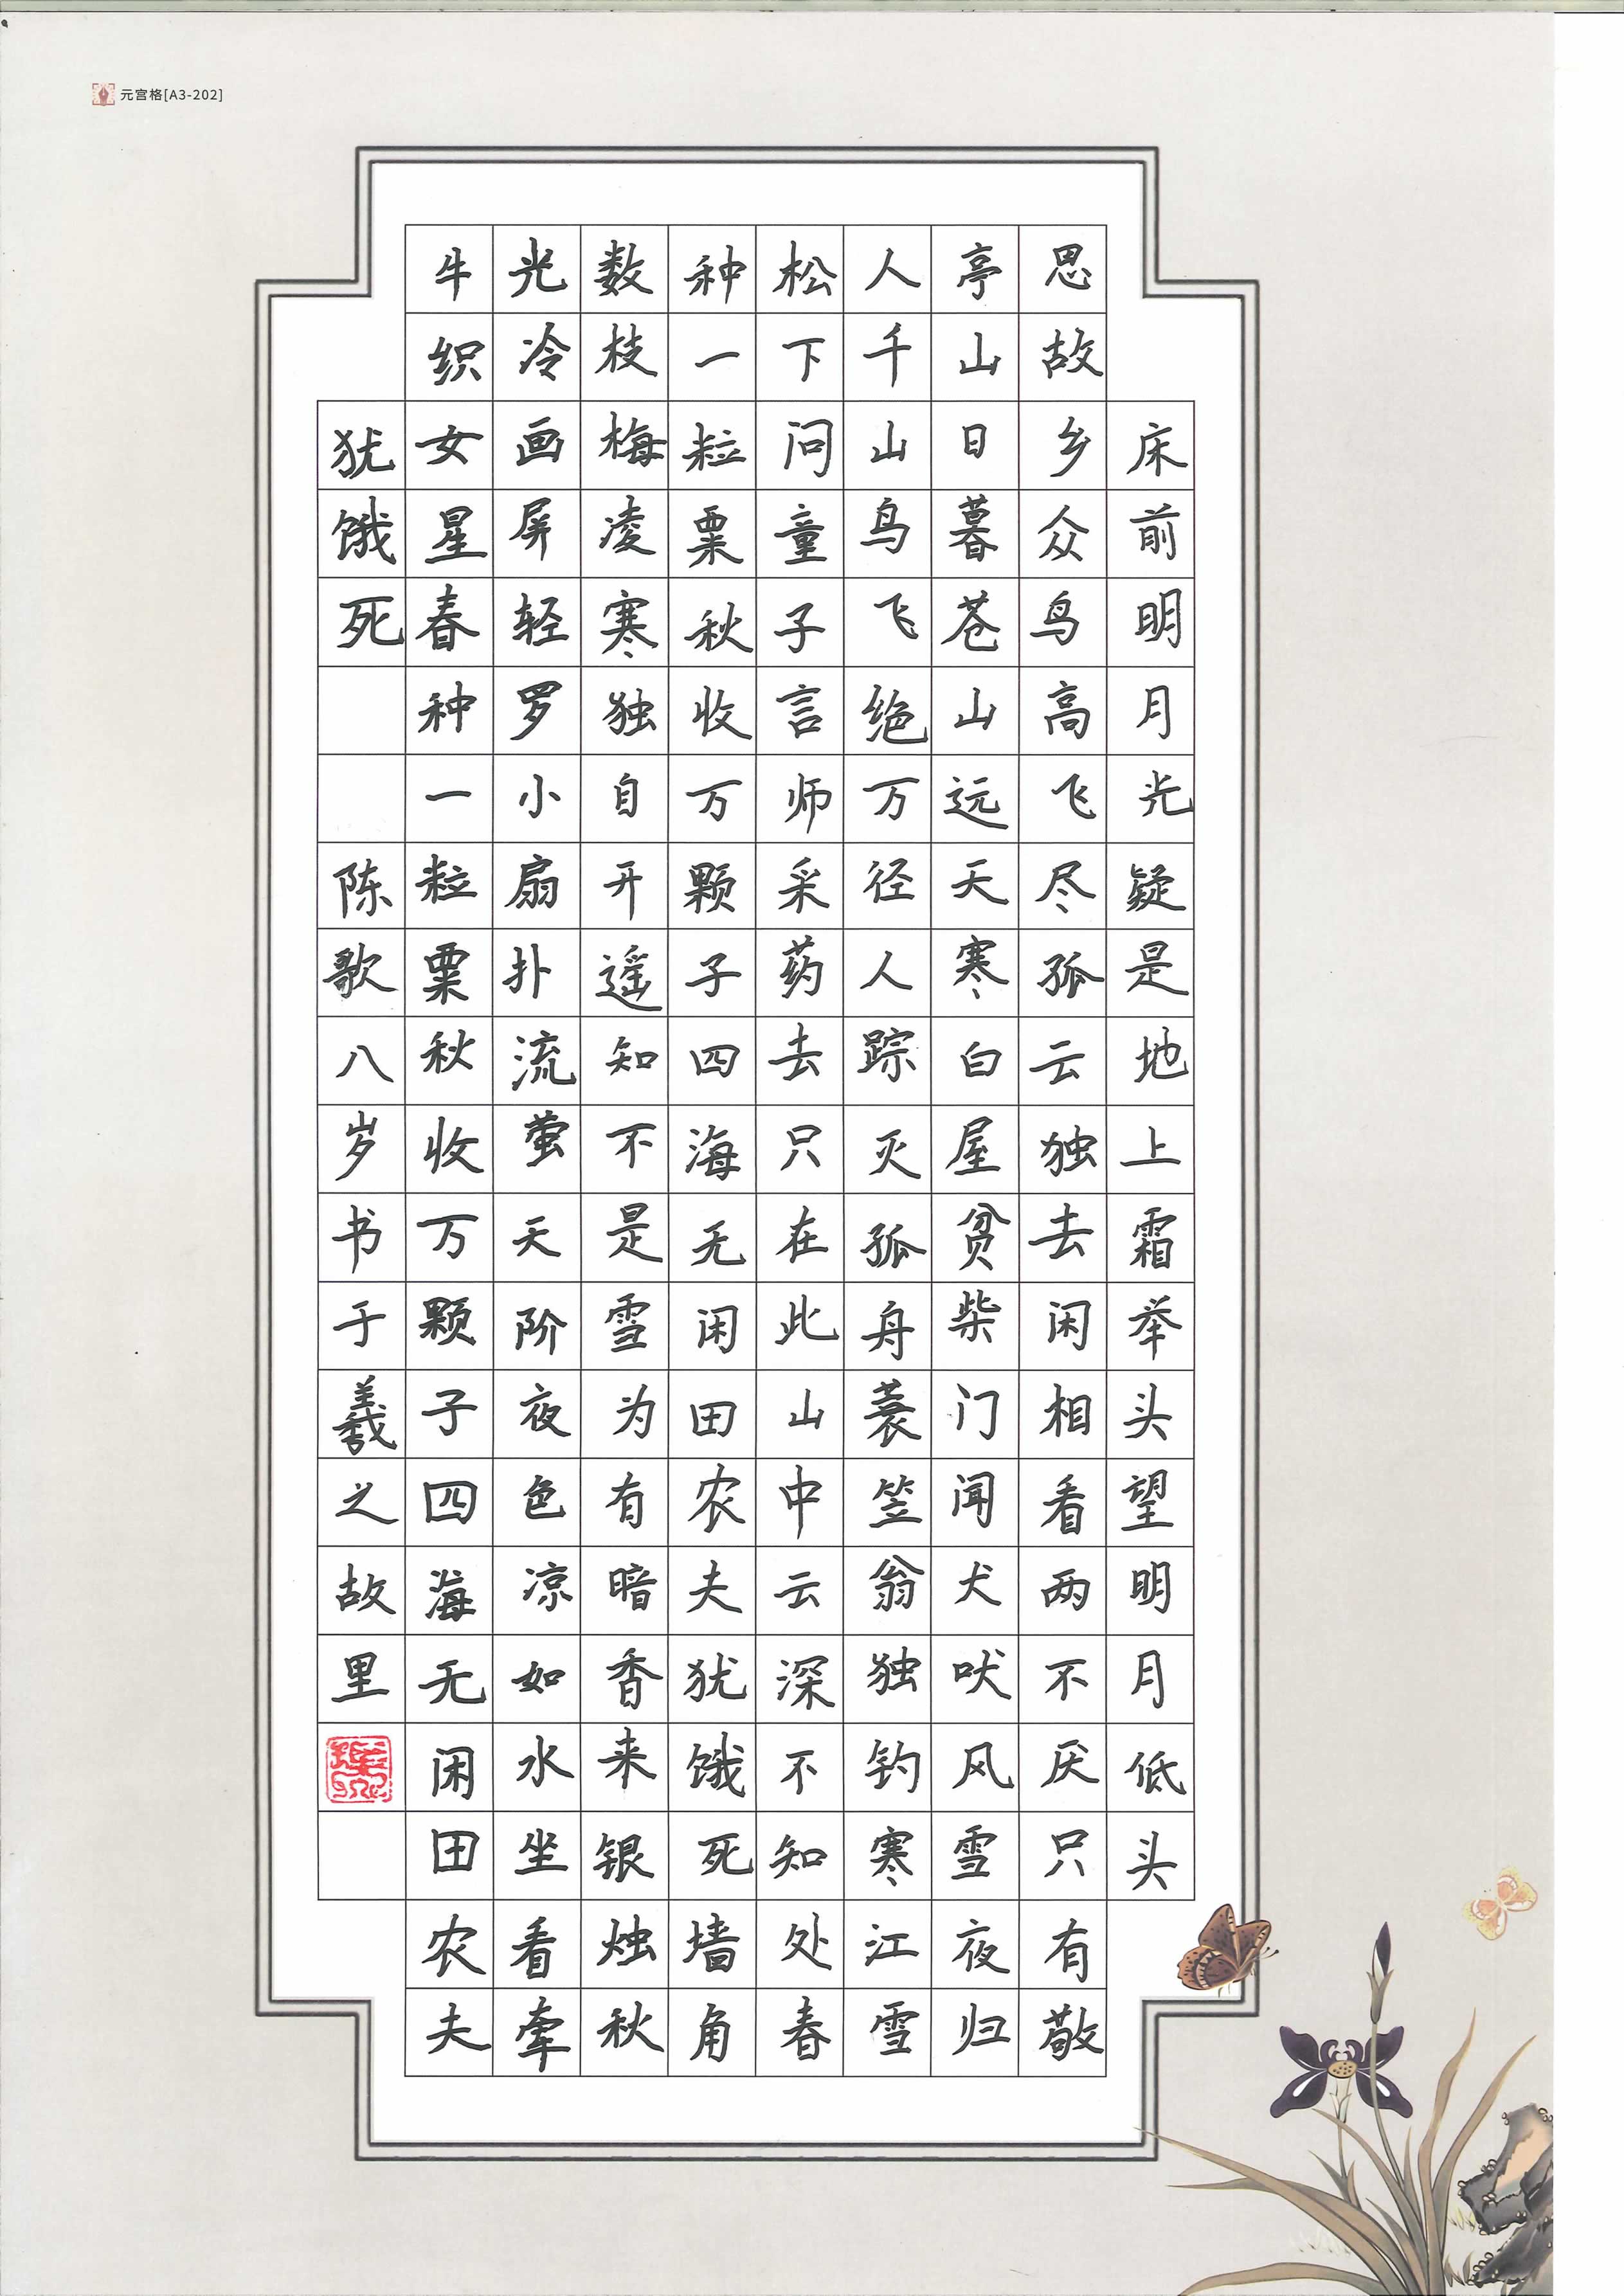 元宫格[A3-202]
床前明月光疑是地上霜举头望明月低头
思故乡众鸟高飞尽孤云独去闲相看两不厌只有敬
亭山日暮苍山远天寒白屋贫柴门闻犬吠风雪夜归
人千山鸟飞绝万径人踪灭孤舟蓑笠翁独钓寒江雪
松下问童子言师采药去只在此山中云深不知处春
种一粒粟秋收万颗子四海无闲田农夫犹饿死墙角
数枝梅凌寒独自开遥知不是雪为有暗香来银烛秋
光冷画屏轻罗小扇扑流萤天阶夜色凉如水坐看牵
牛织女星春种一粒粟秋收万颗子四海无闲田农夫
犹饿死 陈歌八岁书于羲之故里